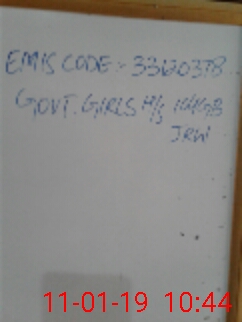 EMIS CODE :- 33620378
GOVT. GIRLS H/S
JRW
11-01-19 10:44